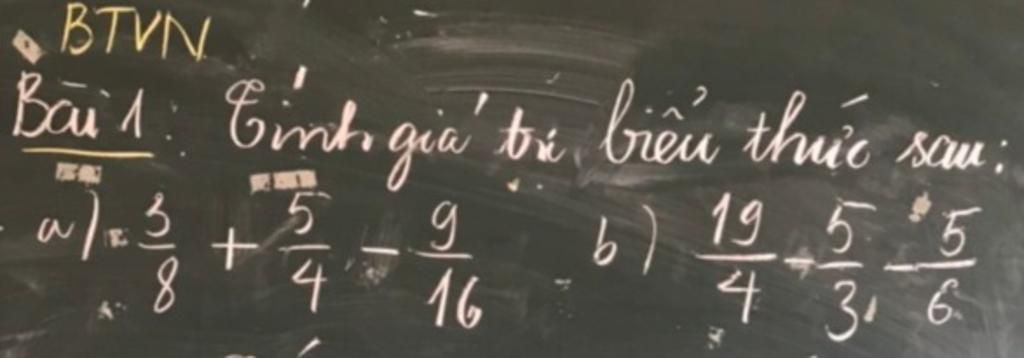 BTVN
Bài 1: Tính giá trị biểu thức sau:
a) 3/8 + 5/4 - 9/16 b) 19/4 - 5/3 - 5/6